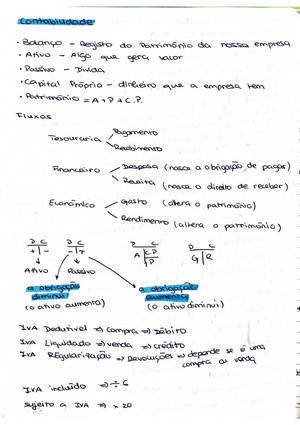 Contabilidade
• Balanço - Registo do Património da nossa empresa
• Ativo - Algo que gera valor
• Passivo - Dívida
• Capital Próprio - dinheiro que a empresa tem
• Património = A + P + C.P.
Fluxos
Tesouraria
Pagamento
Recebimento
Financeiro
Despesa (nasce a obrigação de pagar)
Receita (nasce o direito de receber)
Económico
Gasto (altera o património)
Rendimento (altera o património)
D C
+ | -
Ativo
D C
- | +
Passivo
D C
A | C.P
P
D C
G | R
a obrigação
diminui
(o ativo aumenta)
a obrigação
aumenta
(o ativo diminui)
IVA Dedutível => compra => Débito
IVA Liquidado => venda => crédito
IVA Regularização => Devoluções => depende se é uma
compra ou venda
IVA incluído => ÷ 6
sujeito a IVA => x 20